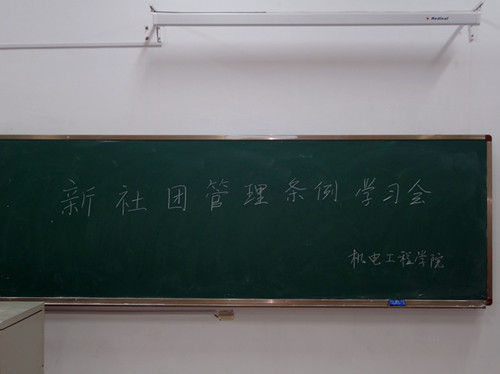 Redleaf
新社团管理条例学习会
机电工程学院